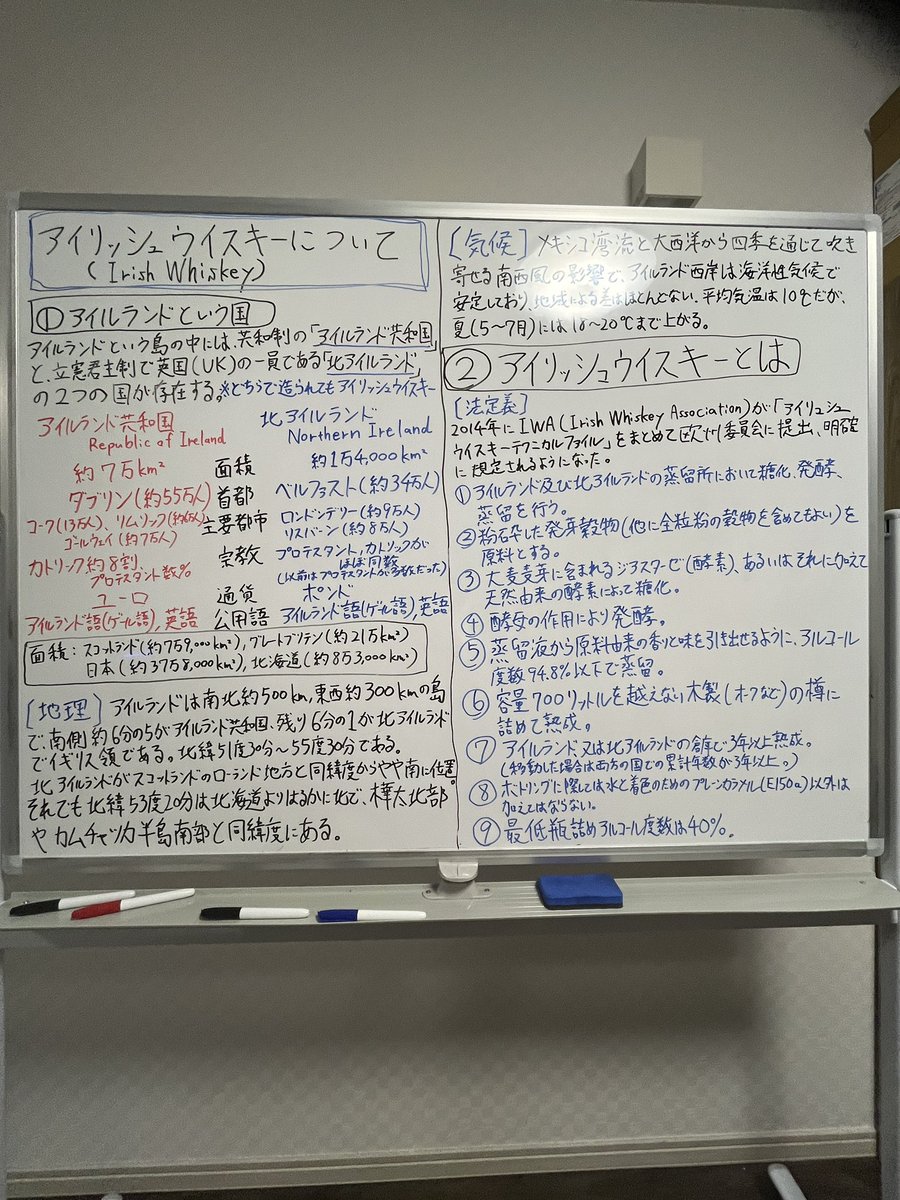 アイリッシュウイスキーについて
(Irish Whiskey)
① アイルランドという国
アイルランドという島の中には、共和制の「アイルランド共和国」
と、立憲君主制で英国(UK)の一員である「北アイルランド」
の2つの国が存在する。※どちらで造られてもアイリッシュウイスキー
アイルランド共和国 北アイルランド
Republic of Ireland Northern Ireland
約7万km² 面積 約1万4,000km²
ダブリン(約55万人) 首都 ベルファスト(約34万人)
コーク(13万人)、リムリック(約6万人) 主要都市 ロンドンデリー(約9万人)
ゴールウェイ(約7万人) リスバーン(約8万人)
カトリック約8割、 宗教 プロテスタント,カトリックが
プロテスタント数% ほぼ同数
(以前はプロテスタントが多数だった)
ユーロ 通貨 ポンド
アイルランド語(ゲール語),英語 公用語 アイルランド語(ゲール語),英語
面積:スコットランド(約759,000km²),グレートブリテン(約21万km²)
日本(約3758,000km²),北海道(約853,000km²)
[地理] アイルランドは南北約500km,東西約300kmの島
で、南側約6分の5がアイルランド共和国、残り6分の1が北アイルランド
でイギリス領である。北緯51度30分〜55度30分である。
北アイルランドがスコットランドのローランド地方と同緯度からやや南に位置。
それでも北緯53度20分は北海道よりはるかに北で、樺太北部
やカムチャツカ半島南部と同緯度にある。
[気候] メキシコ湾流と大西洋から四季を通じて吹き
寄せる南西風の影響で、アイルランド西岸は海洋性気候で
安定しており、地域による差はほとんどない。平均気温は10℃だが、
夏(5〜7月)には18〜20℃まで上がる。
② アイリッシュウイスキーとは
[法定義]
2014年にIWA(Irish Whiskey Association)が「アイリッシュ
ウイスキーテクニカルファイル」をまとめて欧州委員会に提出、明確
に規定されるようになった。
① アイルランド及び北アイルランドの蒸留所において糖化、発酵、
蒸留を行う。
② 粉砕した発芽穀物(他に全粒粉の穀物を含めてもよい)を
原料とする。
③ 大麦麦芽に含まれるジアスターゼ(酵素)、あるいはそれに加えて
天然由来の酵素によって糖化。
④ 酵母の作用により発酵。
⑤ 蒸留液から原料由来の香りと味を引き出せるように、アルコール
度数94.8%以下で蒸留。
⑥ 容量700リットルを越えない木製(オークなど)の樽に
詰めて熟成。
⑦ アイルランド又は北アイルランドの倉庫で3年以上熟成。
(移動した場合は両方の国での累計年数が3年以上。)
⑧ ボトリングに際しては水と着色のためのプレーンカラメル(E150a)以外は
加えてはならない。
⑨ 最低瓶詰めアルコール度数は40%。